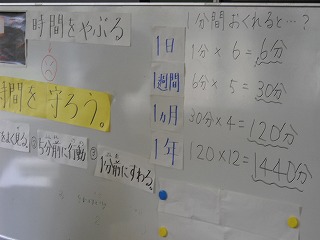 時間をやぶる
時間を守ろう。
をよく見る。
②5分前に行動
③1分前にすわる。
1分間おくれると…?
1日 1分×6=6分
1週間 6分×5=30分
1ヵ月 30分×4=120分
1年 120×12=1440分